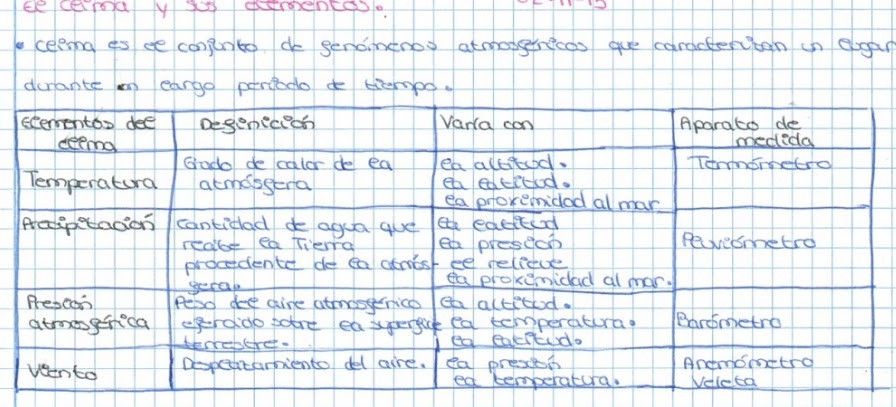 El clima y sus elementos. 02-11-15
• Clima es el conjunto de fenómenos atmosféricos que caracterizan un lugar
durante un largo período de tiempo.
Elementos del clima | Definición | Varía con | Aparato de medida
Temperatura | Grado de calor de la atmósfera | la altitud. la latitud. la proximidad al mar | Termómetro
Precipitación | Cantidad de agua que recibe la Tierra procedente de la atmósfera. | la latitud la presión el relieve la proximidad al mar. | Pluviómetro
Presión atmosférica | Peso del aire atmosférico ejercido sobre la superficie terrestre. | la altitud. la temperatura. la latitud. | Barómetro
Viento | Desplazamiento del aire. | la presión la temperatura. | Anemómetro Veleta